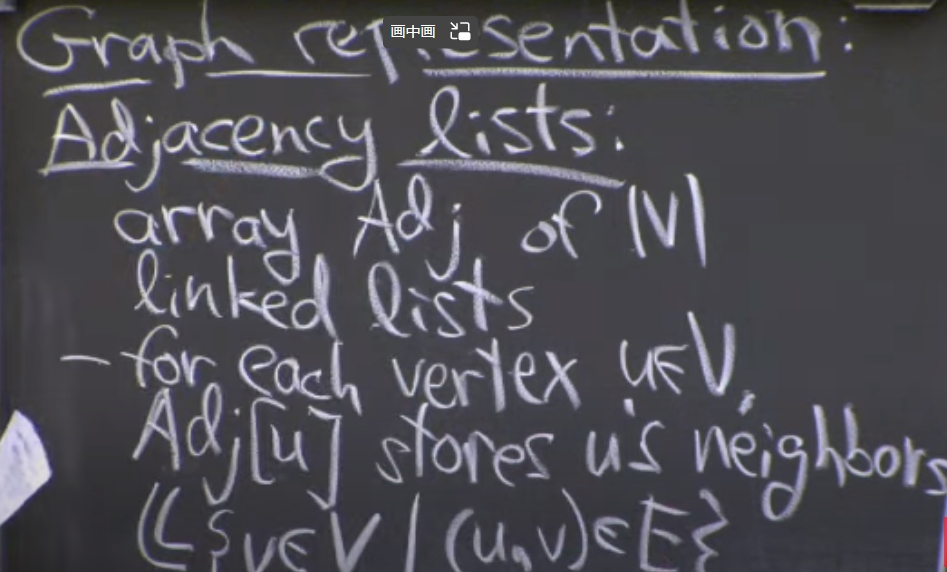 Graph representation:
画中画
Adjacency lists:
array Adj of |V|
linked lists
– for each vertex u∈V,
Adj[u] stores u's neighbors
{v∈V | (u,v)∈E}